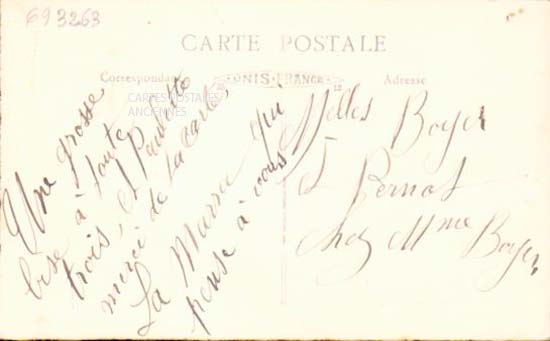 693263
CARTE POSTALE
Correspondance
UNIS-FRANCE
Adresse
CARTES POSTALES
ANCIENNES
Une grosse
bise à toute
trois, et Paulette
merci de la carte
La Marra qui
pense à vous
Melles Boyer
et Pernot
chez Mme Boyer